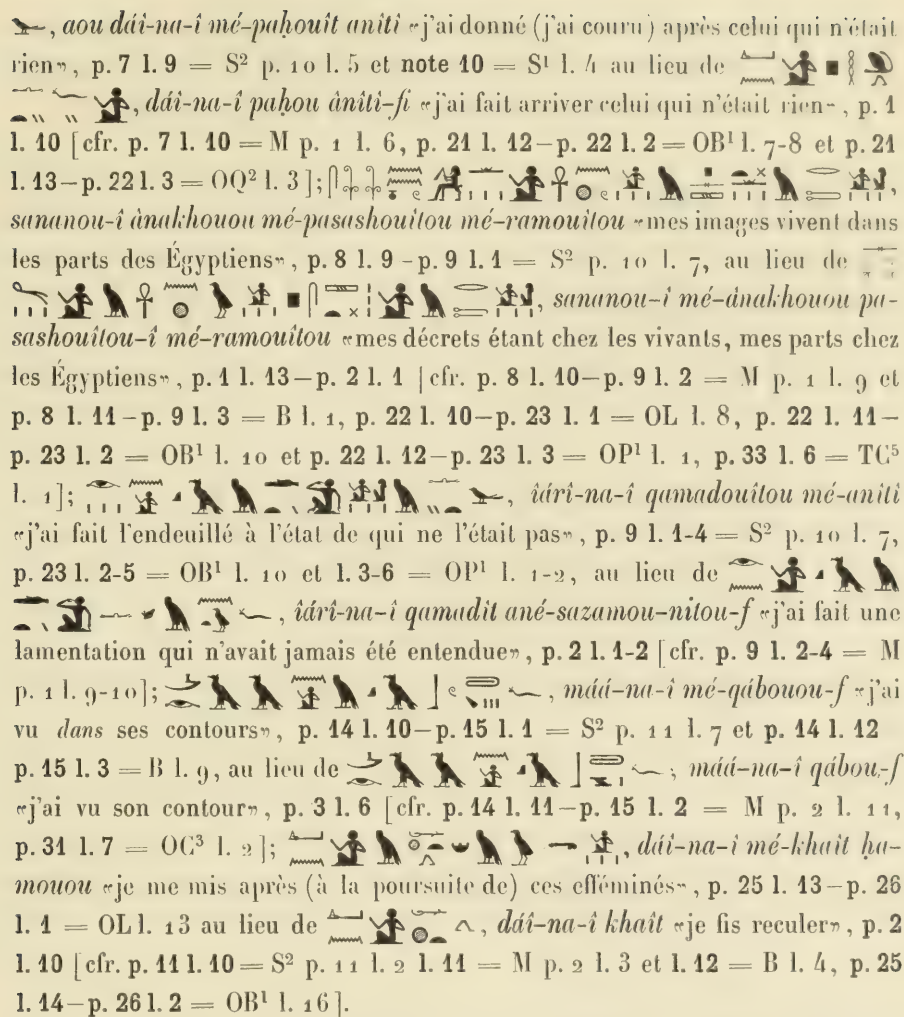 , aou dáî-na-î mé-paḥouît anîti «j'ai donné (j'ai couru) après celui qui n'était
rien», p. 7 l. 9 = S² p. 10 l. 5 et note 10 = S¹ l. 4 au lieu de
, dáî-na-î paḥou ânîti-fi «j'ai fait arriver celui qui n'était rien», p. 1
l. 10 [cfr. p. 7 l. 10 = M p. 1 l. 6, p. 21 l. 12–p. 22 l. 2 = OB¹ l. 7-8 et p. 21
l. 13–p. 22 l. 3 = OQ² l. 3];
sananou-î ànakhouou mé-pasashouîtou mé-ramouîtou «mes images vivent dans
les parts des Égyptiens», p. 8 l. 9 - p. 9 l. 1 = S² p. 10 l. 7, au lieu de
, sananou-î mé-ànakhouou pa-
sashouîtou-î mé-ramouîtou «mes décrets étant chez les vivants, mes parts chez
les Égyptiens», p. 1 l. 13–p. 2 l. 1 [cfr. p. 8 l. 10–p. 9 l. 2 = M p. 1 l. 9 et
p. 8 l. 11–p. 9 l. 3 = B l. 1, p. 22 l. 10–p. 23 l. 1 = OL l. 8, p. 22 l. 11–
p. 23 l. 2 = OB¹ l. 10 et p. 22 l. 12–p. 23 l. 3 = OP¹ l. 1, p. 33 l. 6 = TC⁵
l. 1]; , îárî-na-î qamadouîtou mé-anîti
«j'ai fait l'endeuillé à l'état de qui ne l'était pas», p. 9 l. 1-4 = S² p. 10 l. 7,
p. 23 l. 2-5 = OB¹ l. 10 et l. 3-6 = OP¹ l. 1-2, au lieu de
, îárî-na-î qamadît ané-sazamou-nitou-f «j'ai fait une
lamentation qui n'avait jamais été entendue», p. 2 l. 1-2 [cfr. p. 9 l. 2-4 = M
p. 1 l. 9-10]; , máá-na-î mé-qábouou-f «j'ai
vu dans ses contours», p. 14 l. 10–p. 15 l. 1 = S² p. 11 l. 7 et p. 14 l. 12
p. 15 l. 3 = B l. 9, au lieu de , máá-na-î qábou-f
«j'ai vu son contour», p. 3 l. 6 [cfr. p. 14 l. 11–p. 15 l. 2 = M p. 2 l. 11,
p. 31 l. 7 = OC³ l. 2]; , dáî-na-î mé-khaît ḥa-
mouou «je me mis après (à la poursuite de) ces efféminés», p. 25 l. 13–p. 26
l. 1 = OL l. 13 au lieu de , dáî-na-î khaît «je fis reculer», p. 2
l. 10 [cfr. p. 11 l. 10 = S² p. 11 l. 2 l. 11 = M p. 2 l. 3 et l. 12 = B l. 4, p. 25
l. 14–p. 26 l. 2 = OB¹ l. 16].